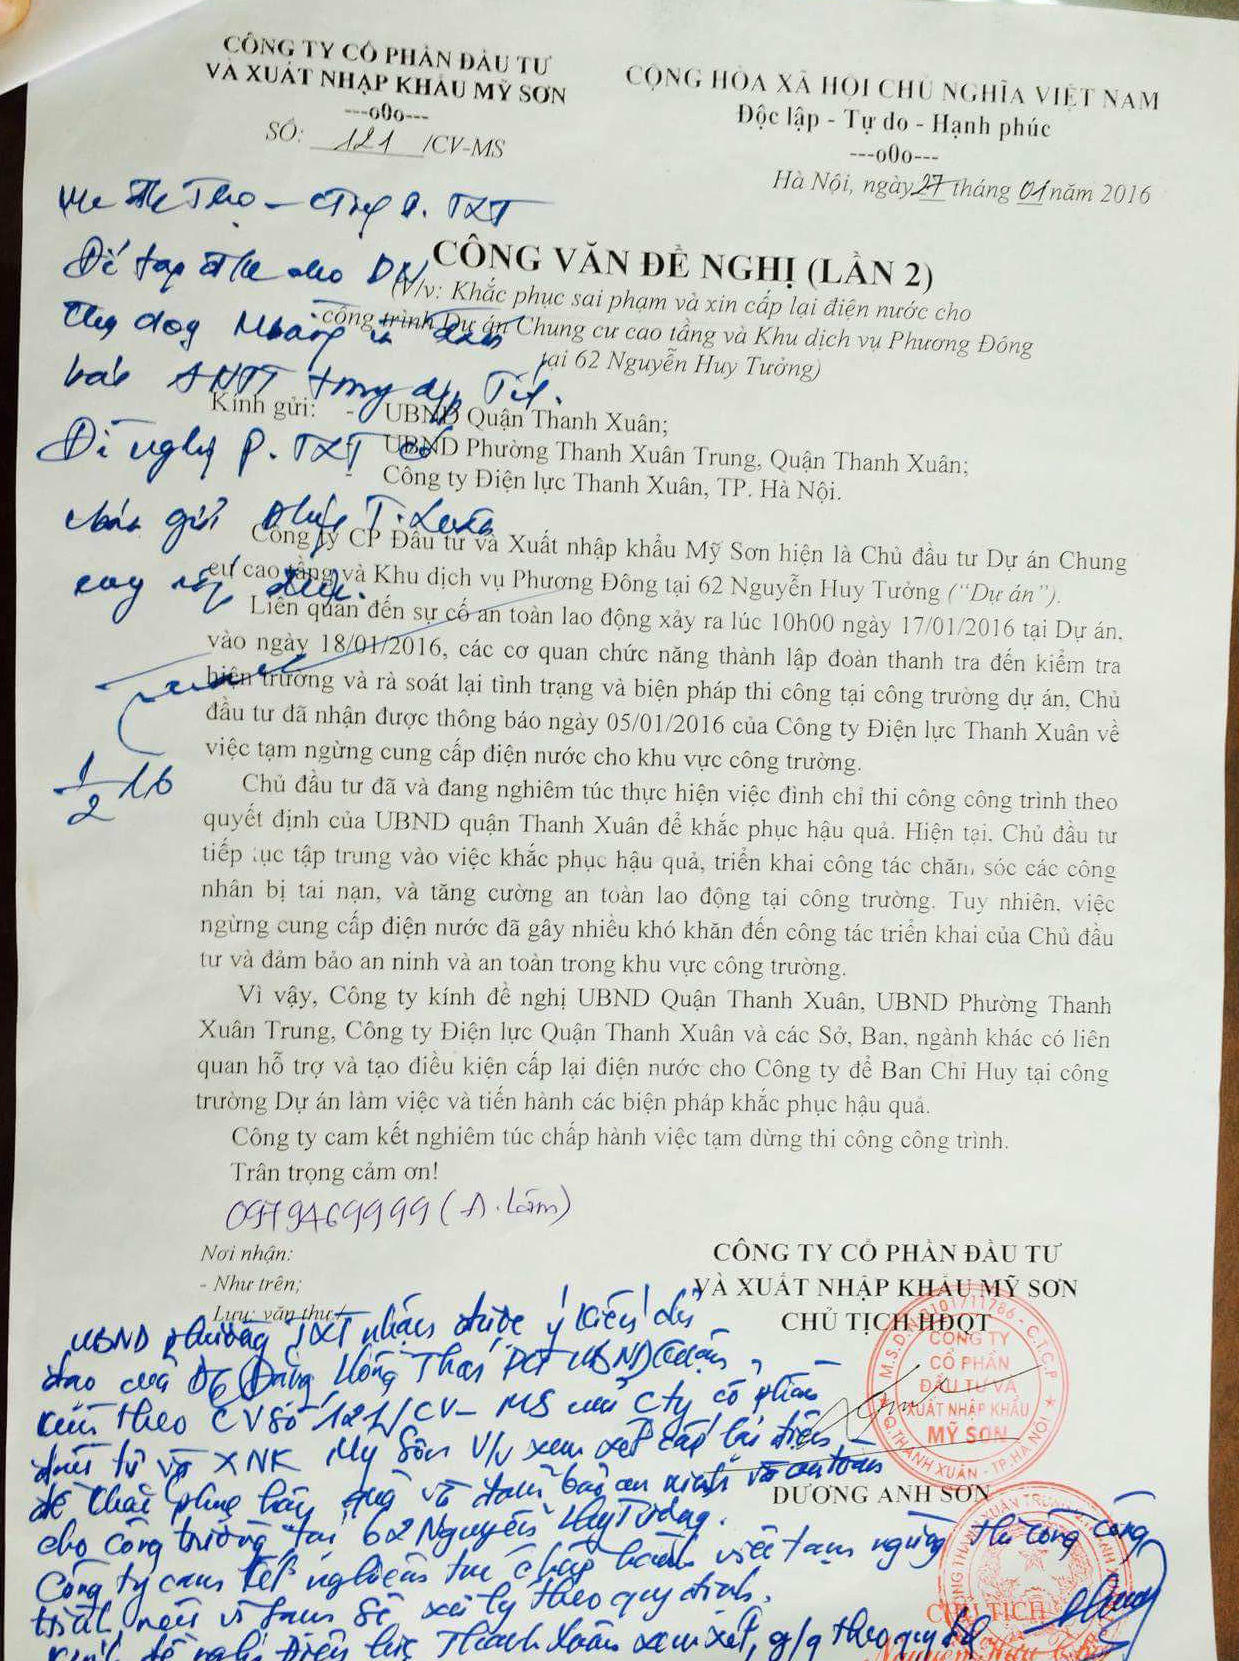 CÔNG TY CỔ PHẦN ĐẦU TƯ
VÀ XUẤT NHẬP KHẨU MỸ SƠN
---o0o---
SỐ: 121 /CV-MS
CỘNG HÒA XÃ HỘI CHỦ NGHĨA VIỆT NAM
Độc lập - Tự do - Hạnh phúc
---o0o---
Hà Nội, ngày 27 tháng 01 năm 2016
P. TXT
CÔNG VĂN ĐỀ NGHỊ (LẦN 2)
(V/v: Khắc phục sai phạm và xin cấp lại điện nước cho
công trình Dự án Chung cư cao tầng và Khu dịch vụ Phương Đông
tại 62 Nguyễn Huy Tưởng)
Kính gửi: - UBND Quận Thanh Xuân;
- UBND Phường Thanh Xuân Trung, Quận Thanh Xuân;
- Công ty Điện lực Thanh Xuân, TP. Hà Nội.
Đề nghị P. TXT có
Công ty CP Đầu tư và Xuất nhập khẩu Mỹ Sơn hiện là Chủ đầu tư Dự án Chung
cư cao tầng và Khu dịch vụ Phương Đông tại 62 Nguyễn Huy Tưởng (“Dự án”).
Liên quan đến sự cố an toàn lao động xảy ra lúc 10h00 ngày 17/01/2016 tại Dự án,
vào ngày 18/01/2016, các cơ quan chức năng thành lập đoàn thanh tra đến kiểm tra
hiện trường và rà soát lại tình trạng và biện pháp thi công tại công trường dự án, Chủ
đầu tư đã nhận được thông báo ngày 05/01/2016 của Công ty Điện lực Thanh Xuân về
việc tạm ngừng cung cấp điện nước cho khu vực công trường.
1/2 16
Chủ đầu tư đã và đang nghiêm túc thực hiện việc đình chỉ thi công công trình theo
quyết định của UBND quận Thanh Xuân để khắc phục hậu quả. Hiện tại, Chủ đầu tư
tiếp tục tập trung vào việc khắc phục hậu quả, triển khai công tác chăm sóc các công
nhân bị tai nạn, và tăng cường an toàn lao động tại công trường. Tuy nhiên, việc
ngừng cung cấp điện nước đã gây nhiều khó khăn đến công tác triển khai của Chủ đầu
tư và đảm bảo an ninh và an toàn trong khu vực công trường.
Vì vậy, Công ty kính đề nghị UBND Quận Thanh Xuân, UBND Phường Thanh
Xuân Trung, Công ty Điện lực Quận Thanh Xuân và các Sở, Ban, ngành khác có liên
quan hỗ trợ và tạo điều kiện cấp lại điện nước cho Công ty để Ban Chỉ Huy tại công
trường Dự án làm việc và tiến hành các biện pháp khắc phục hậu quả.
Công ty cam kết nghiêm túc chấp hành việc tạm dừng thi công công trình.
Trân trọng cảm ơn!
0979469999 (A. Lâm)
Nơi nhận:
- Như trên;
- Lưu: văn thư./.
CÔNG TY CỔ PHẦN ĐẦU TƯ
VÀ XUẤT NHẬP KHẨU MỸ SƠN
CHỦ TỊCH HĐQT
CÔNG TY
CỔ PHẦN
ĐẦU TƯ VÀ
XUẤT NHẬP KHẨU
MỸ SƠN
Q. THANH XUÂN - TP. HÀ NỘI
DƯƠNG ANH SƠN
UBND phường TXT nhận được ý kiến chỉ
đạo của Đ/c Đặng Hồng Thái PCT UBND Quận,
kèm theo CV số 121/CV-MS của Cty cổ phần
đầu tư và XNK Mỹ Sơn V/v xem xét cấp lại điện
để khắc phục hậu quả và đảm bảo an ninh và an toàn
cho công trường tại 62 Nguyễn Huy Tưởng.
Công ty cam kết nghiêm túc chấp hành việc tạm ngừng thi công công
trình, nếu vi phạm sẽ xử lý theo quy định.
Kính đề nghị Điện lực Thanh Xuân xem xét, g/q theo quy định
CHỦ TỊCH